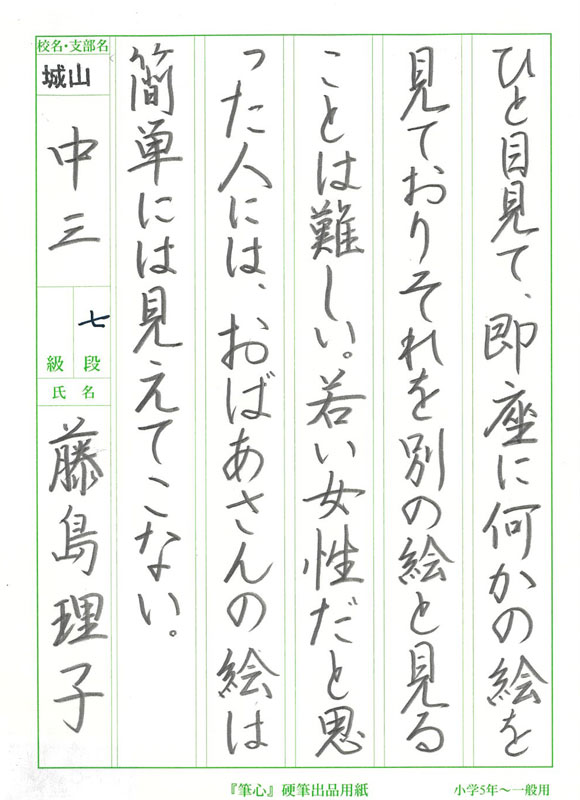 ひと目見て、即座に何かの絵を
見ておりそれを別の絵と見る
ことは難しい。若い女性だと思
った人には、おばあさんの絵は
簡単には見えてこない。
校名・支部名
城山
中三
七
段
級
氏名
藤島理子
『筆心』硬筆出品用紙
小学5年〜一般用